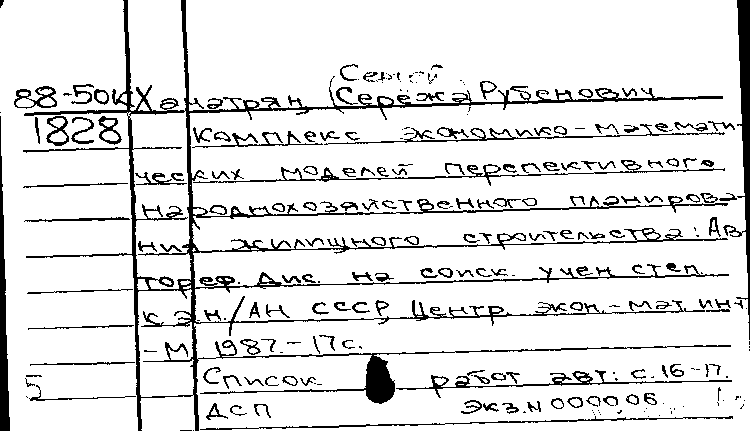 Сергей
88-50к Хачатрян (Сережа) Рубенович
1828 Комплекс экономико-математи-
ческих моделей перспективного
народнохозяйственного планирова-
ния жилищного строительства: Ав-
тореф. дис. на соиск. учен степ.
к.э.н./АН СССР, Центр. экон.-мат. ин-т
-М, 1987.-17с.
5 Список работ авт: с.16-17.
ДСП Экз.N 000006